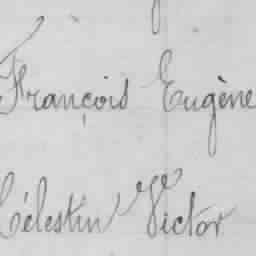 François Eugène
Célestin Victor